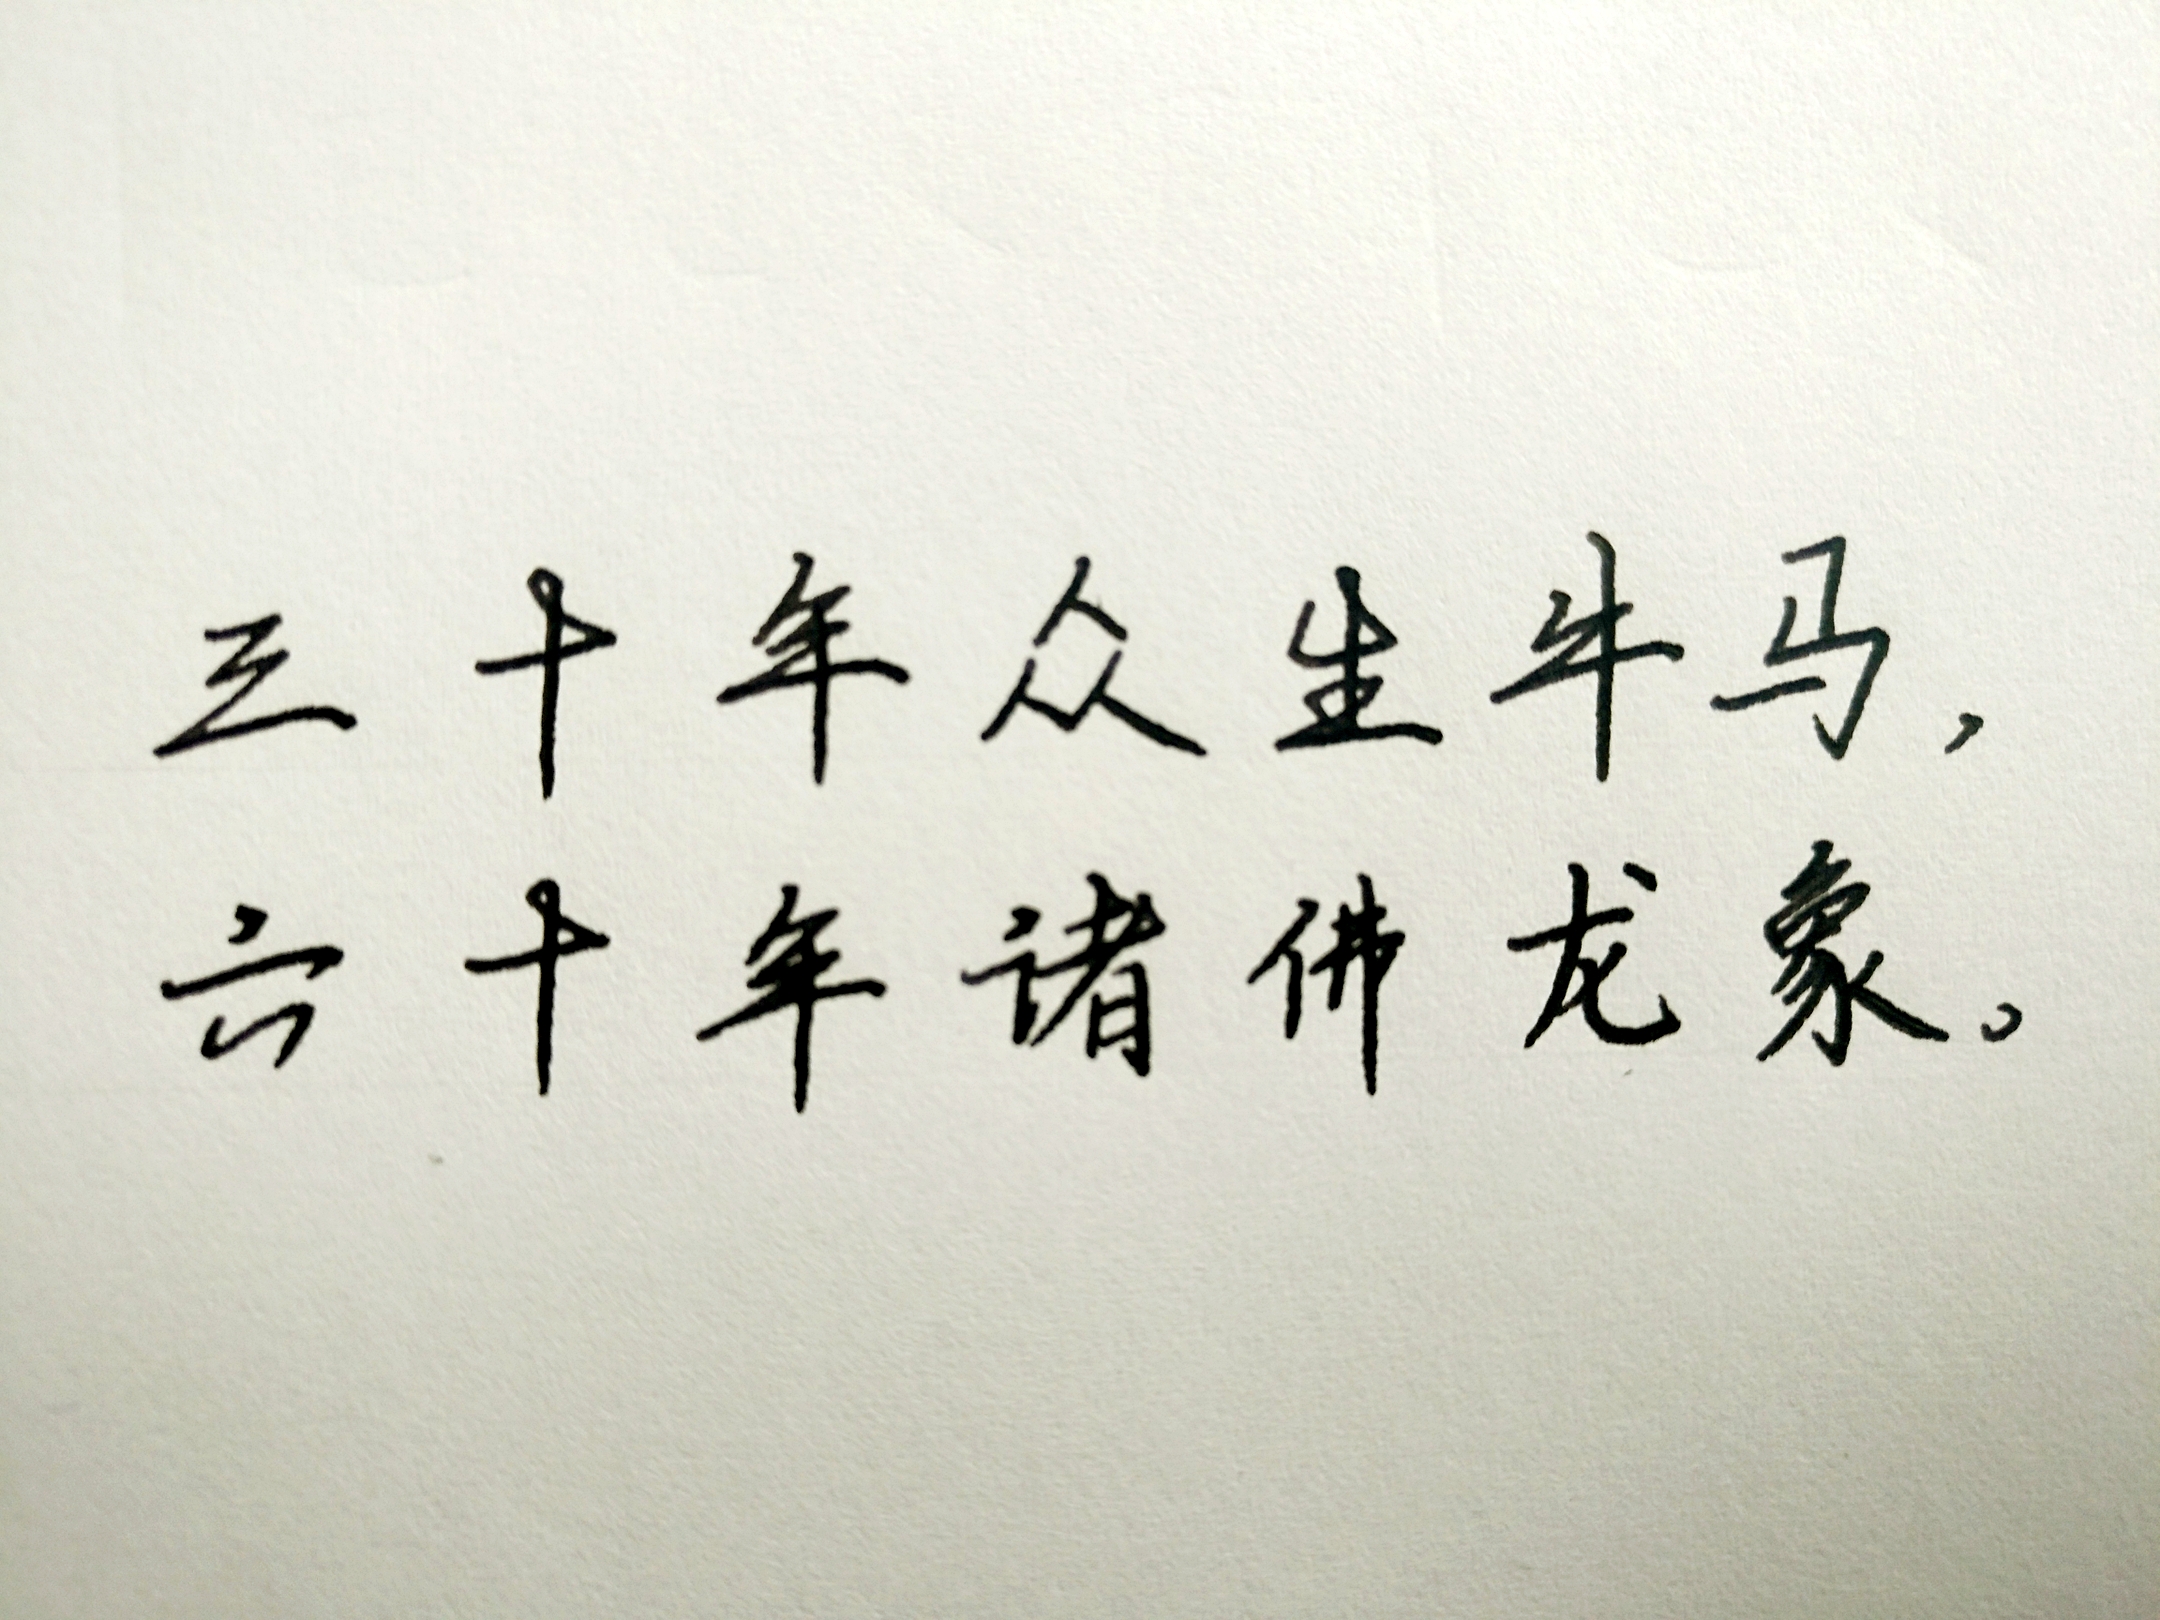 三十年众生牛马，
六十年诸佛龙象。